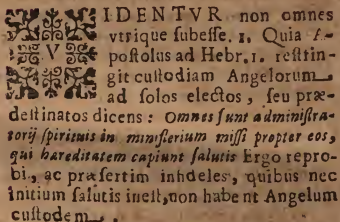 VIDENTVR non omnes
vtrique subesse. 1. Quia A-
postolus ad Hebr. 1. restrin-
git custodiam Angelorum
ad solos electos, seu præ-
destinatos dicens: Omnes sunt administra-
torij spiritus in ministerium missi propter eos,
qui hæreditatem capiunt salutis Ergo repro-
bi, ac præsertim infideles, quibus nec
initium salutis inest, non habent Angelum
custodem.